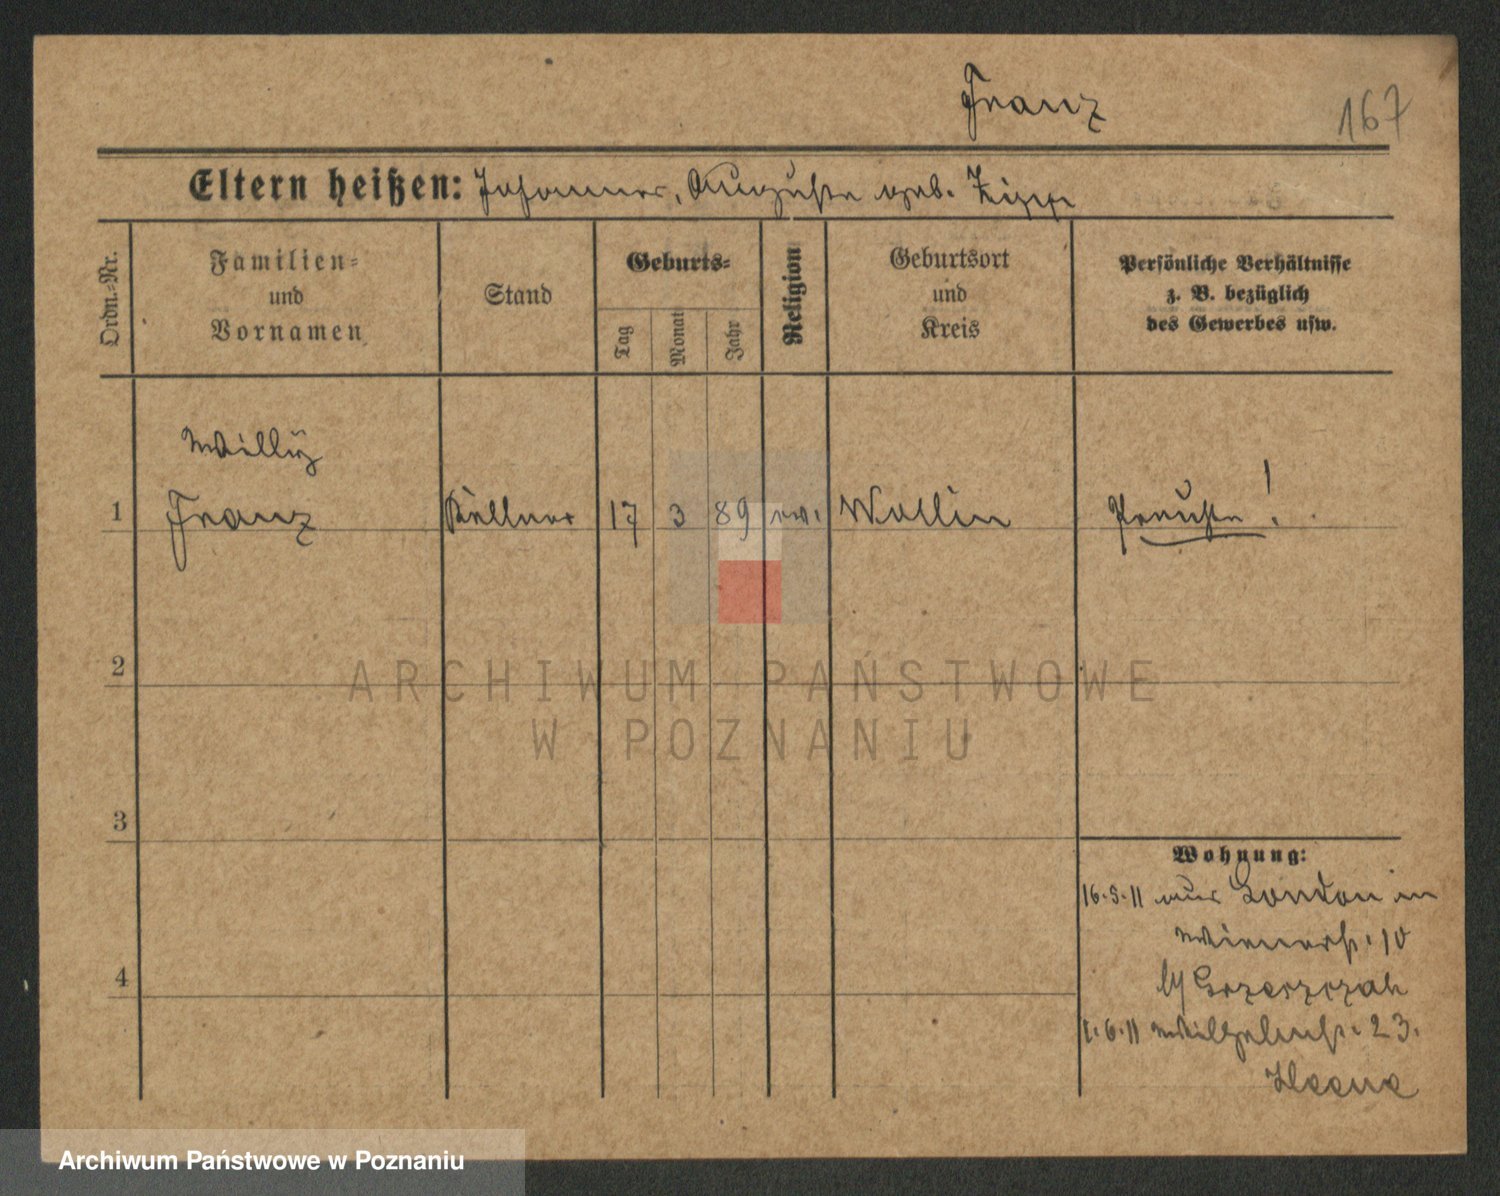 Franz
167
Eltern heißen: Johannes, Auguste geb. Zipp
Ordn.-Nr.
Familien-
und
Vornamen
Stand
Geburts-
Tag
Monat
Jahr
Religion
Geburtsort
und
Kreis
Persönliche Verhältnisse
z. B. bezüglich
des Gewerbes usw.
Willÿ
1 Franz Kellner 17 3 89 ev. Wollin Preuße!
2
3
4
Wohnung:
16.5.11 aus London in
Wienerstr. 10
b/ Grzeszczak
1.6.11 Wilhelmstr. 23.
ARCHIWUM PAŃSTWOWE
W POZNANIU
Archiwum Państwowe w Poznaniu